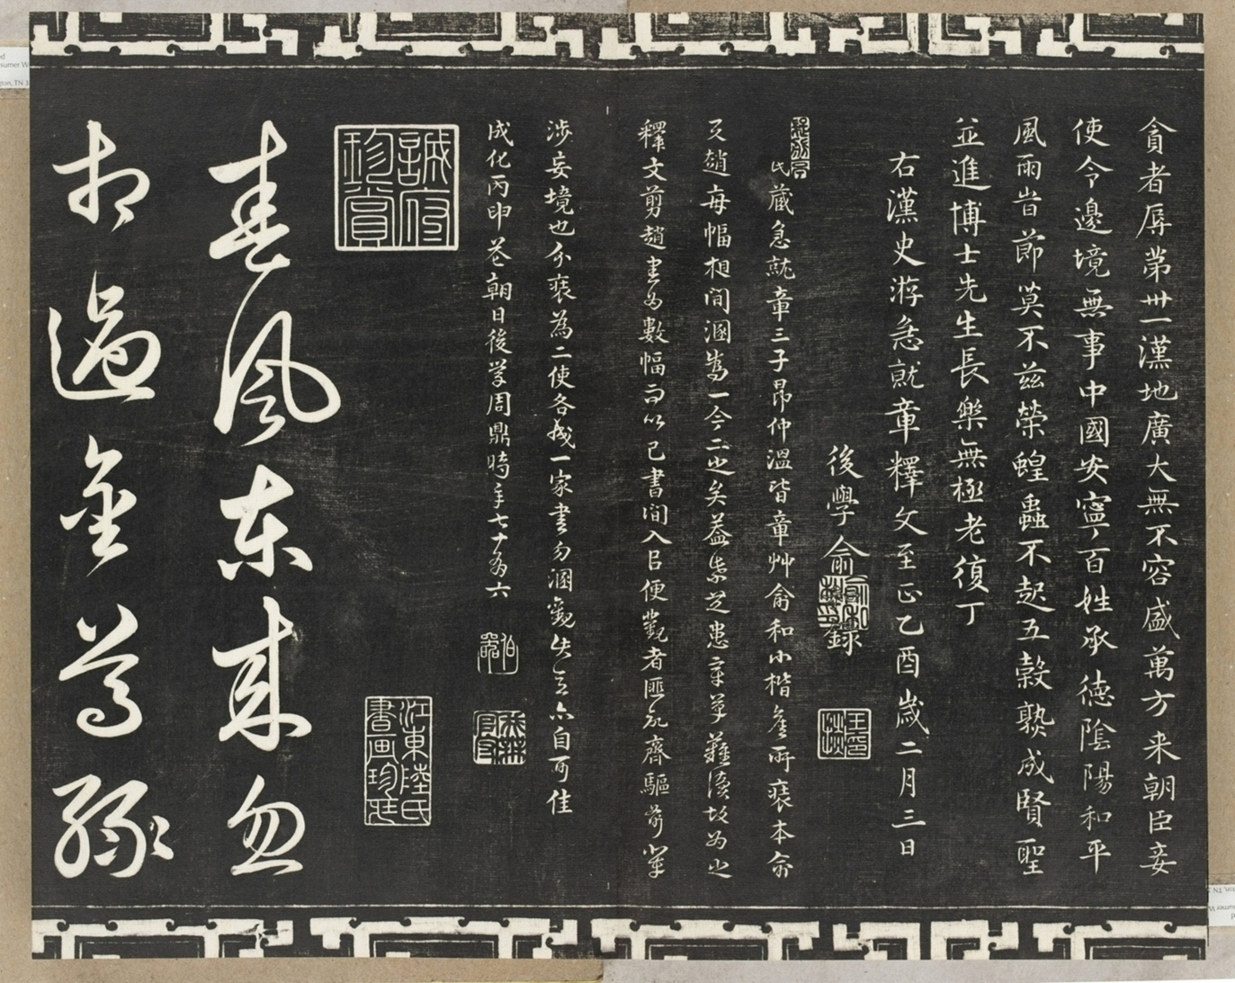 貪者辱第卅一漢地廣大無不容盛萬方来朝臣妾
使令邊境無事中國安寧百姓承德陰陽和平
風雨旹節莫不茲榮蝗蟲不起五穀孰成賢聖
並進博士先生長樂無極老復丁
右漢史游急就章釋文至正乙酉歲二月三日
後學俞和錄
氏蔵急就章三子昂仲溫皆章艸俞和小楷
又趙每幅相間溷為一今二之矣益
釋文剪趙書為數幅而以己書間入㠯便觀者匪私齊驅前輩
涉妄境也分裘為二使各成一家書勿溷觀失之亦自可佳
成化丙申花朝日後學周鼎時年七十有六
伯器
誠府珍賞
江東陸氏書畫珍藏
春風東來忽
相過金尊綠